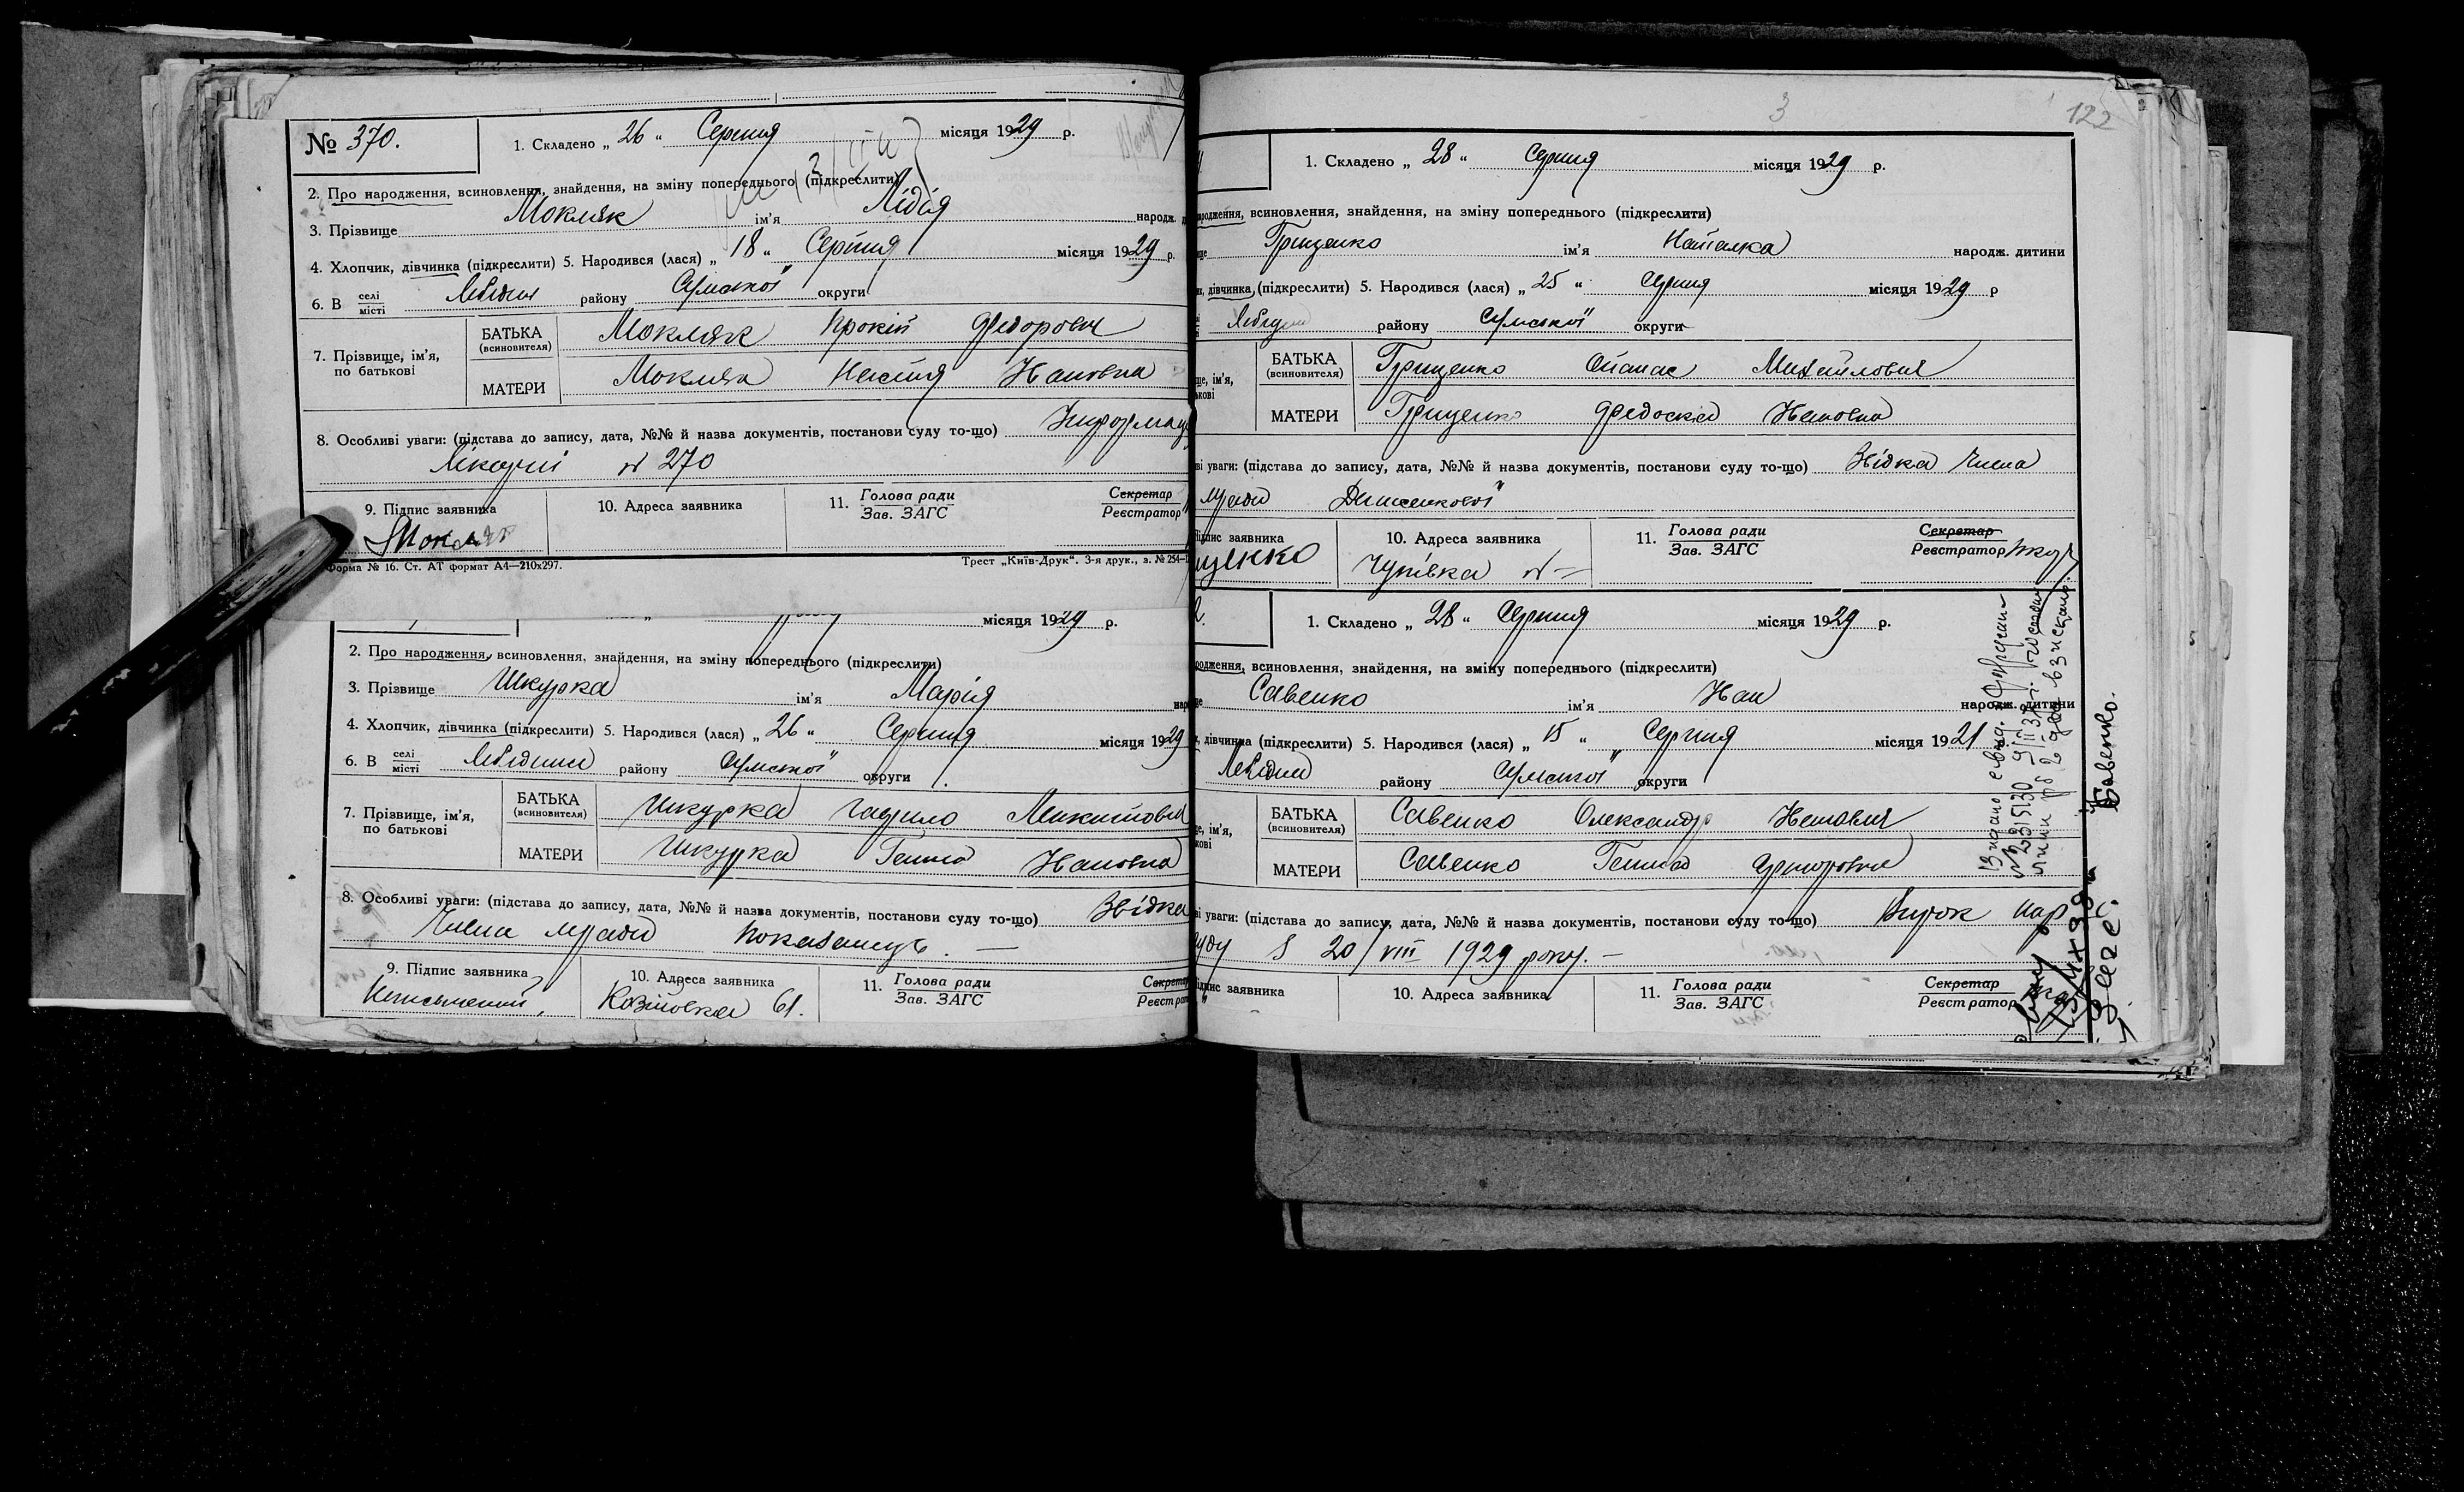 № 370.
1. Складено „ 26 “ Серпня місяця 1929 р.
2. Про народження, всиновлення, знайдення, на зміну попереднього (підкреслити)
3. Прізвище Мокляк ім'я Лідія народж.
4. Хлопчик, дівчинка (підкреслити) 5. Народився (лася) „ 18 “ Серпня місяця 1929 р.
6. В селі місті Лебедин району Сумської округи
7. Прізвище, ім'я, по батькові
БАТЬКА (всиновителя) Мокляк Прокіп Федорович
МАТЕРИ Мокляк Настя Ивановна
8. Особливі уваги: (підстава до запису, дата, №№ й назва документів, постанови суду то-що)
Лікарні № 270
9. Підпис заявника 10. Адреса заявника 11. Голова ради Зав. ЗАГС Секретар Реєстратор
Мокляк
Форма № 16. Ст. АТ формат А4—210х297. Трест „Київ-Друк“. 3-я друк., з. № 254—
місяця 1929 р.
2. Про народження, всиновлення, знайдення, на зміну попереднього (підкреслити)
3. Прізвище Шкурка ім'я Марія
4. Хлопчик, дівчинка (підкреслити) 5. Народився (лася) „ 26 “ Серпня місяця 1929
6. В селі місті Лебедині району Сумської округи
7. Прізвище, ім'я, по батькові
БАТЬКА (всиновителя) Шкурка Гаврило Микитович
МАТЕРИ Шкурка Ганна Ивановна
8. Особливі уваги: (підстава до запису, дата, №№ й назва документів, постанови суду то-що) Звідка
Члена м/ради
9. Підпис заявника 10. Адреса заявника 11. Голова ради Зав. ЗАГС
Неписьменний Козіовка 61.
3 122
1. Складено „ 28 “ Серпня місяця 1929 р.
народження, всиновлення, знайдення, на зміну попереднього (підкреслити)
Грищенко ім'я Наталка народж. дитини
дівчинка (підкреслити) 5. Народився (лася) „ 25 “ Серпня місяця 1929 р
Лебедин району Сумської округи
БАТЬКА (всиновителя) Грищенко Опанас Михайлович
МАТЕРИ Грищенко Федоска Ивановна
уваги: (підстава до запису, дата, №№ й назва документів, постанови суду то-що) Звідка Члена
м/ради
заявника 10. Адреса заявника 11. Голова ради Зав. ЗАГС Секретар Реєстратор
Чупівка №
1. Складено „ 28 “ Серпня місяця 1929 р.
всиновлення, знайдення, на зміну попереднього (підкреслити)
Савенко ім'я Иван народж. дитини
дівчинка (підкреслити) 5. Народився (лася) „ 15 “ Серпня місяця 1921
Лебедин району Сумської округи
БАТЬКА (всиновителя) Савенко Олександр Иванович
МАТЕРИ Савенко Ганна Григоровна
уваги: (підстава до запису, дата, №№ й назва документів, постанови суду то-що) Витяг нар
суду 20/VIII 1929 року. —
заявника 10. Адреса заявника 11. Голова ради Зав. ЗАГС Секретар Реєстратор
Савенко.